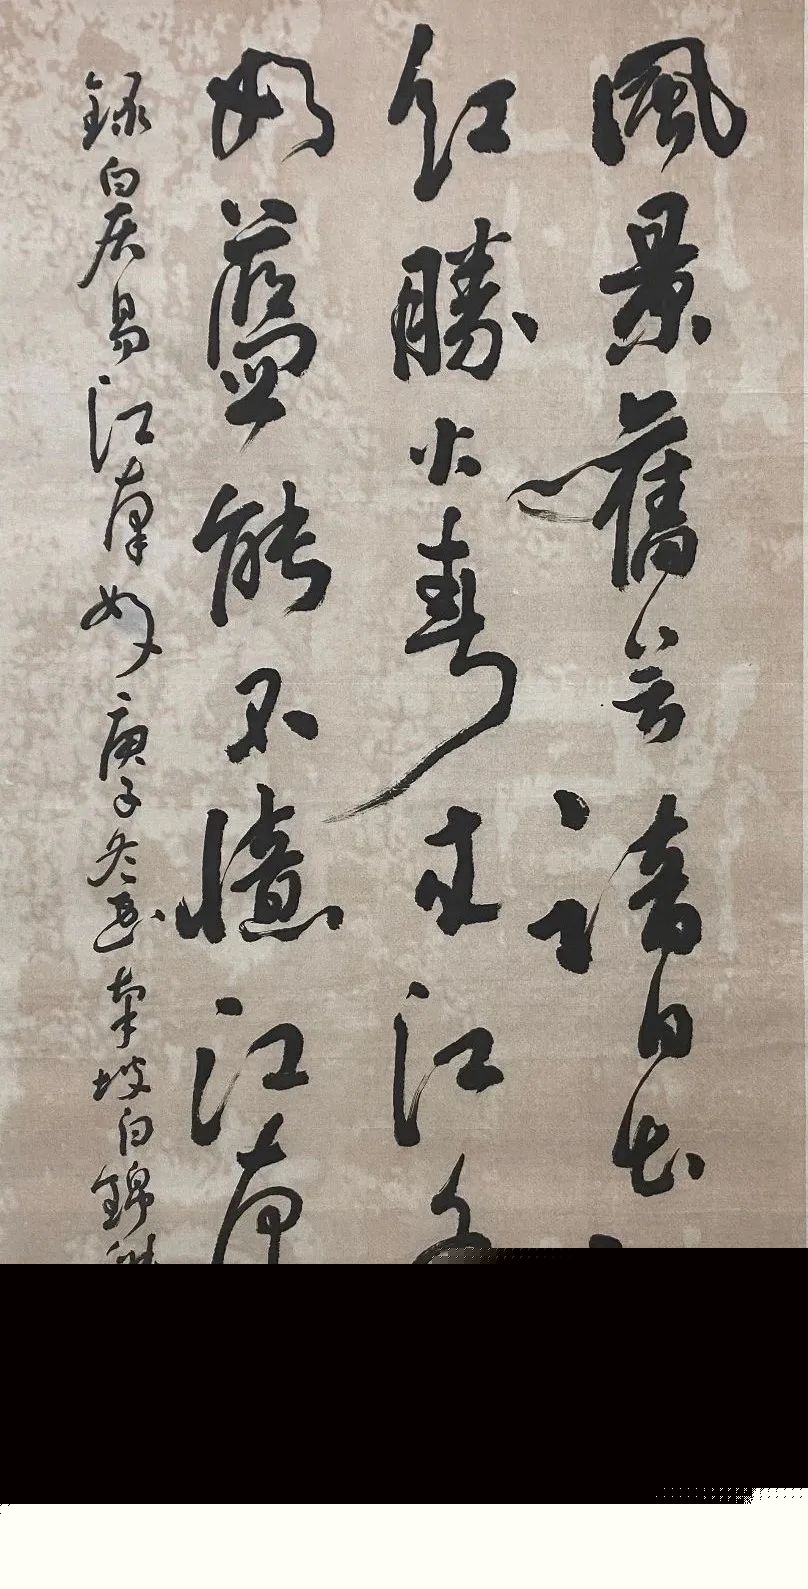 風景舊曾諳日出
紅勝火春来江
如藍能不憶江南
録白居易江南好庚子冬坡白錦